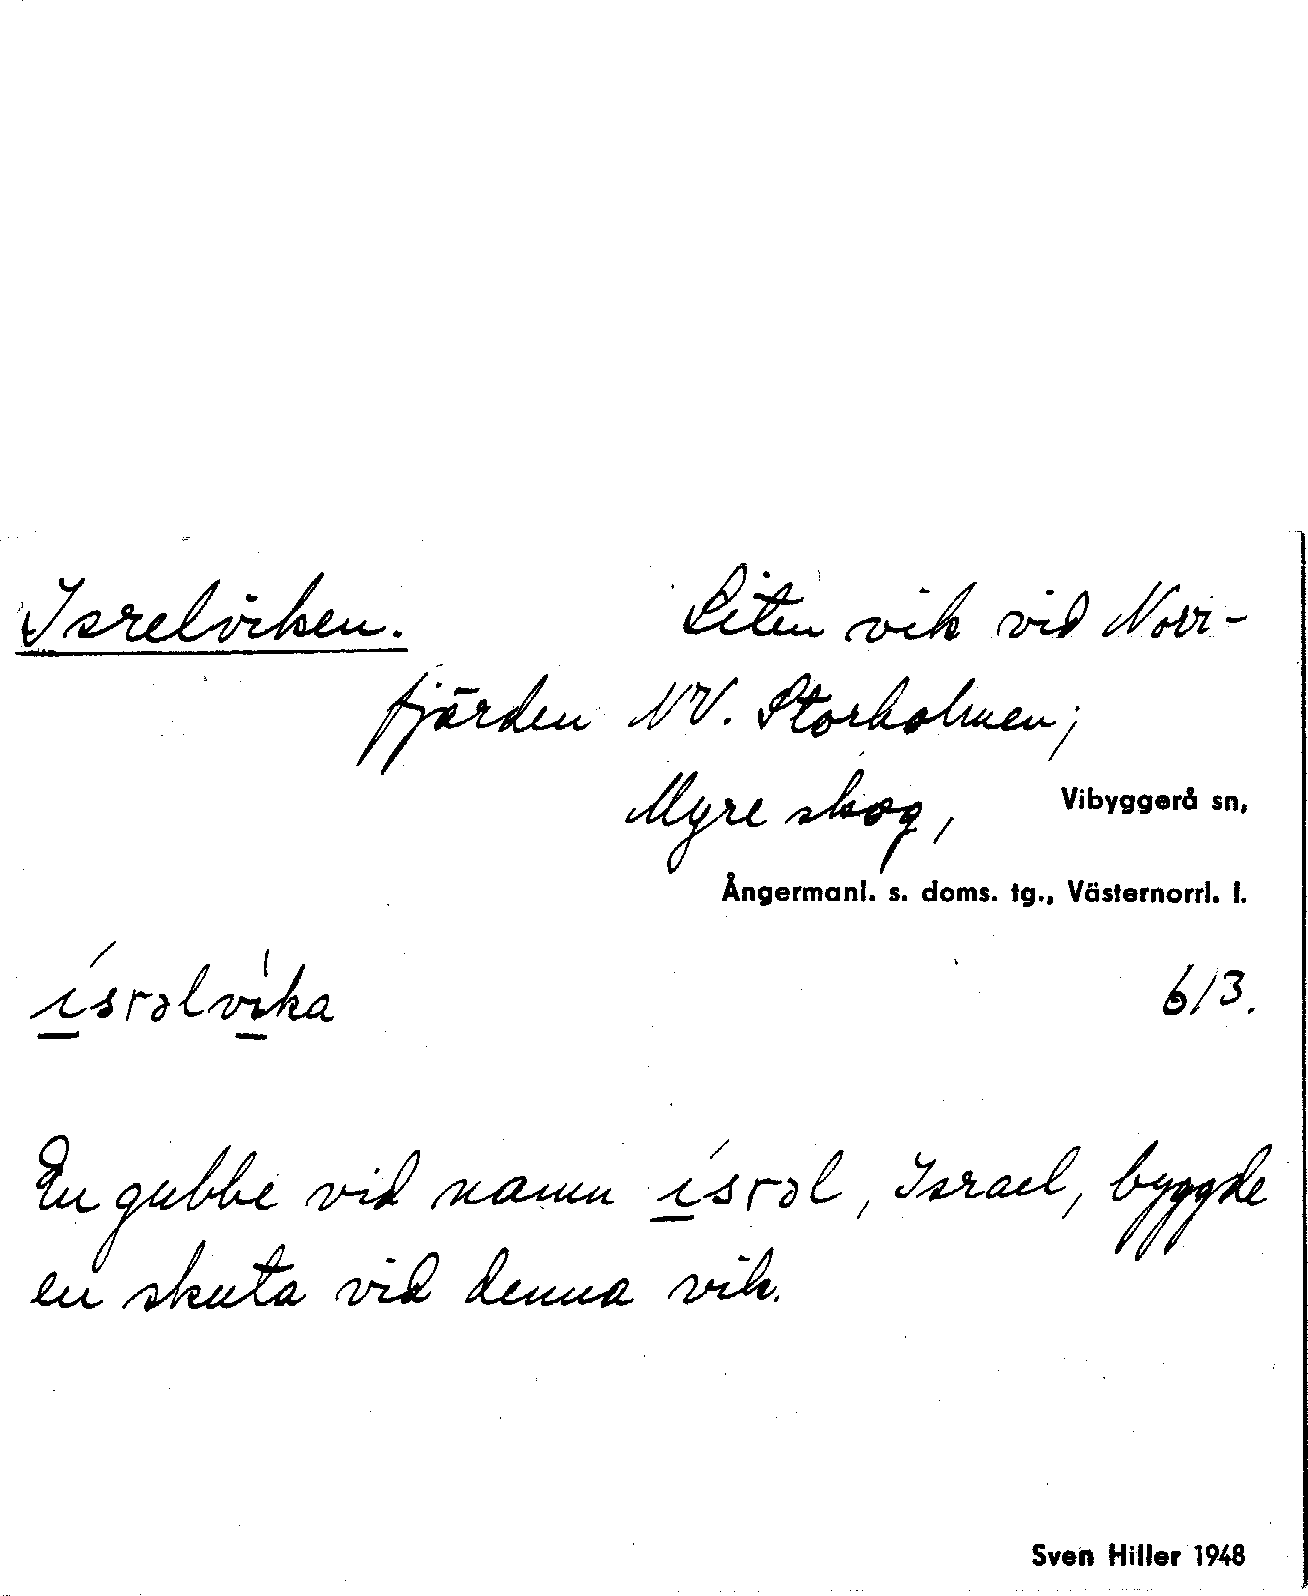 Isrelviken. Liten vik vid Norr-
fjärden NV. Storholmen;
Myre skog, Vibyggerå sn,
Ångermanl. s. doms. tg., Västernorrl. l.
ísrəlvìka 613.
En gubbe vid namn ísrəl, Israel, byggde
en skuta vid denna vik.
Sven Hiller 1948